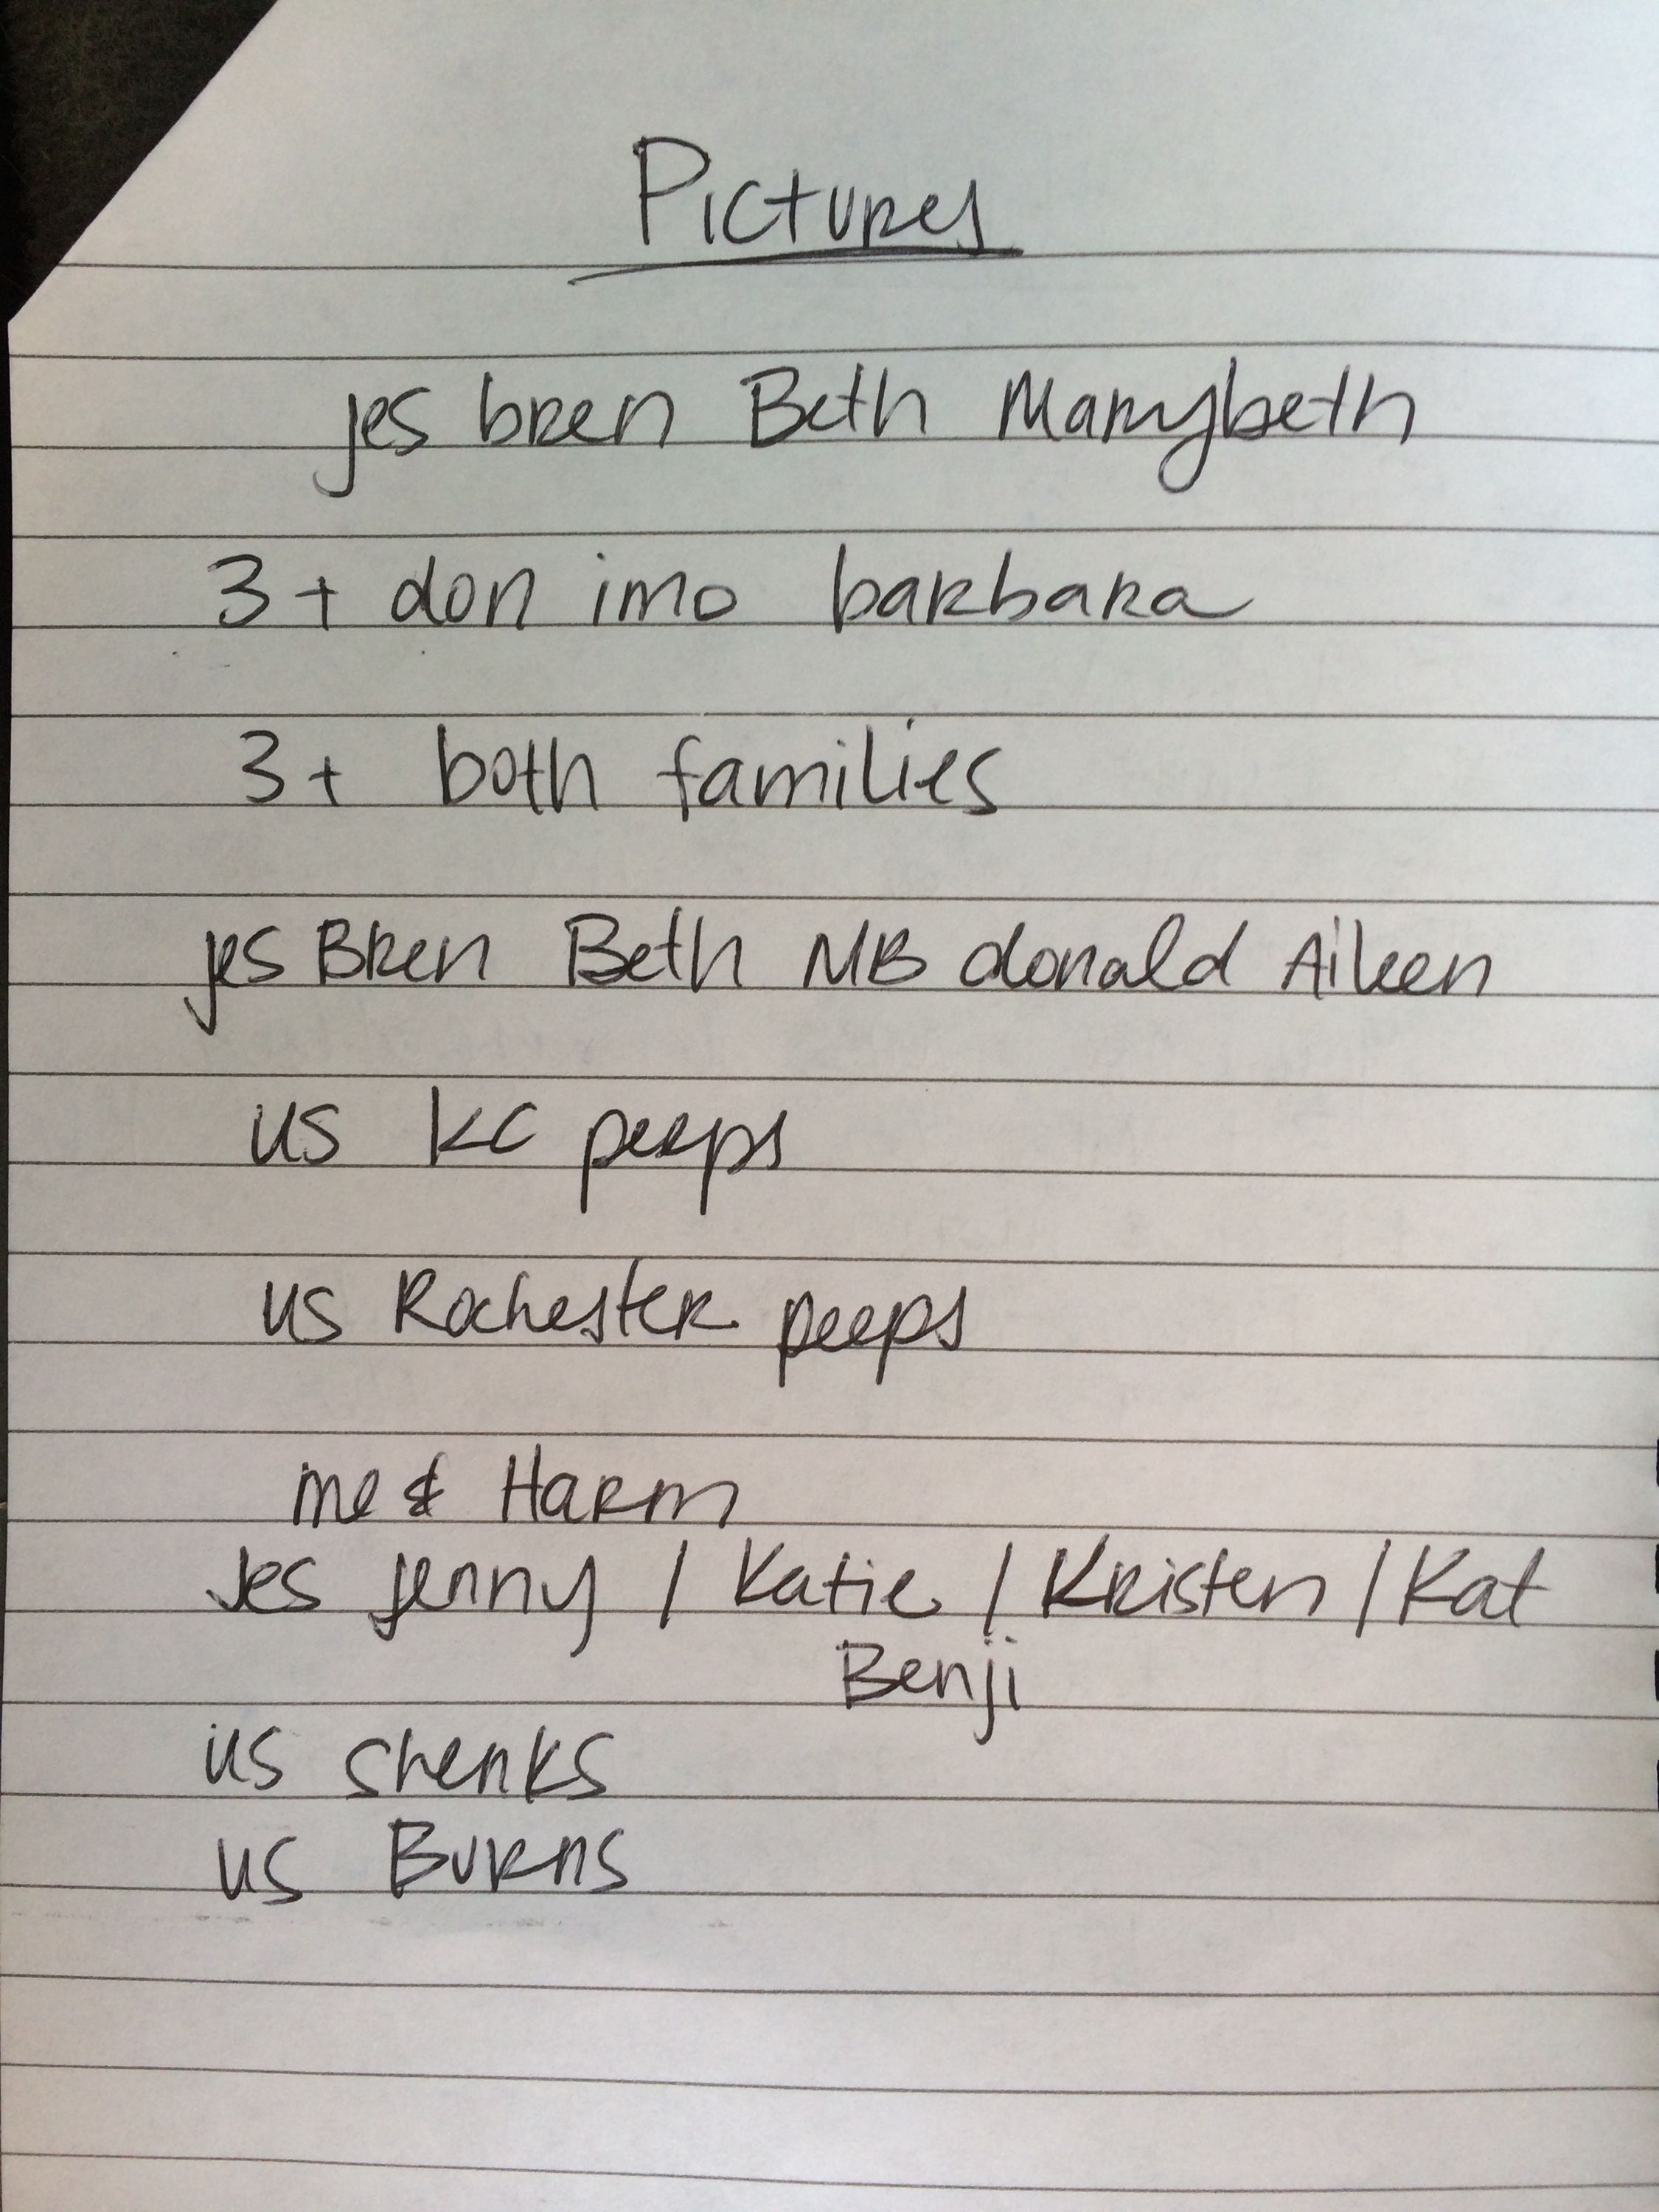 Pictures
jes bren Beth Marybeth
3+ don imo barbara
3+ both families
jes Bren Beth MB donald Aileen
us KC peeps
us Rochester peeps
me & Harm
Jes jenny / Katie / Kristen / Kat
Benji
us shenks
us Burns